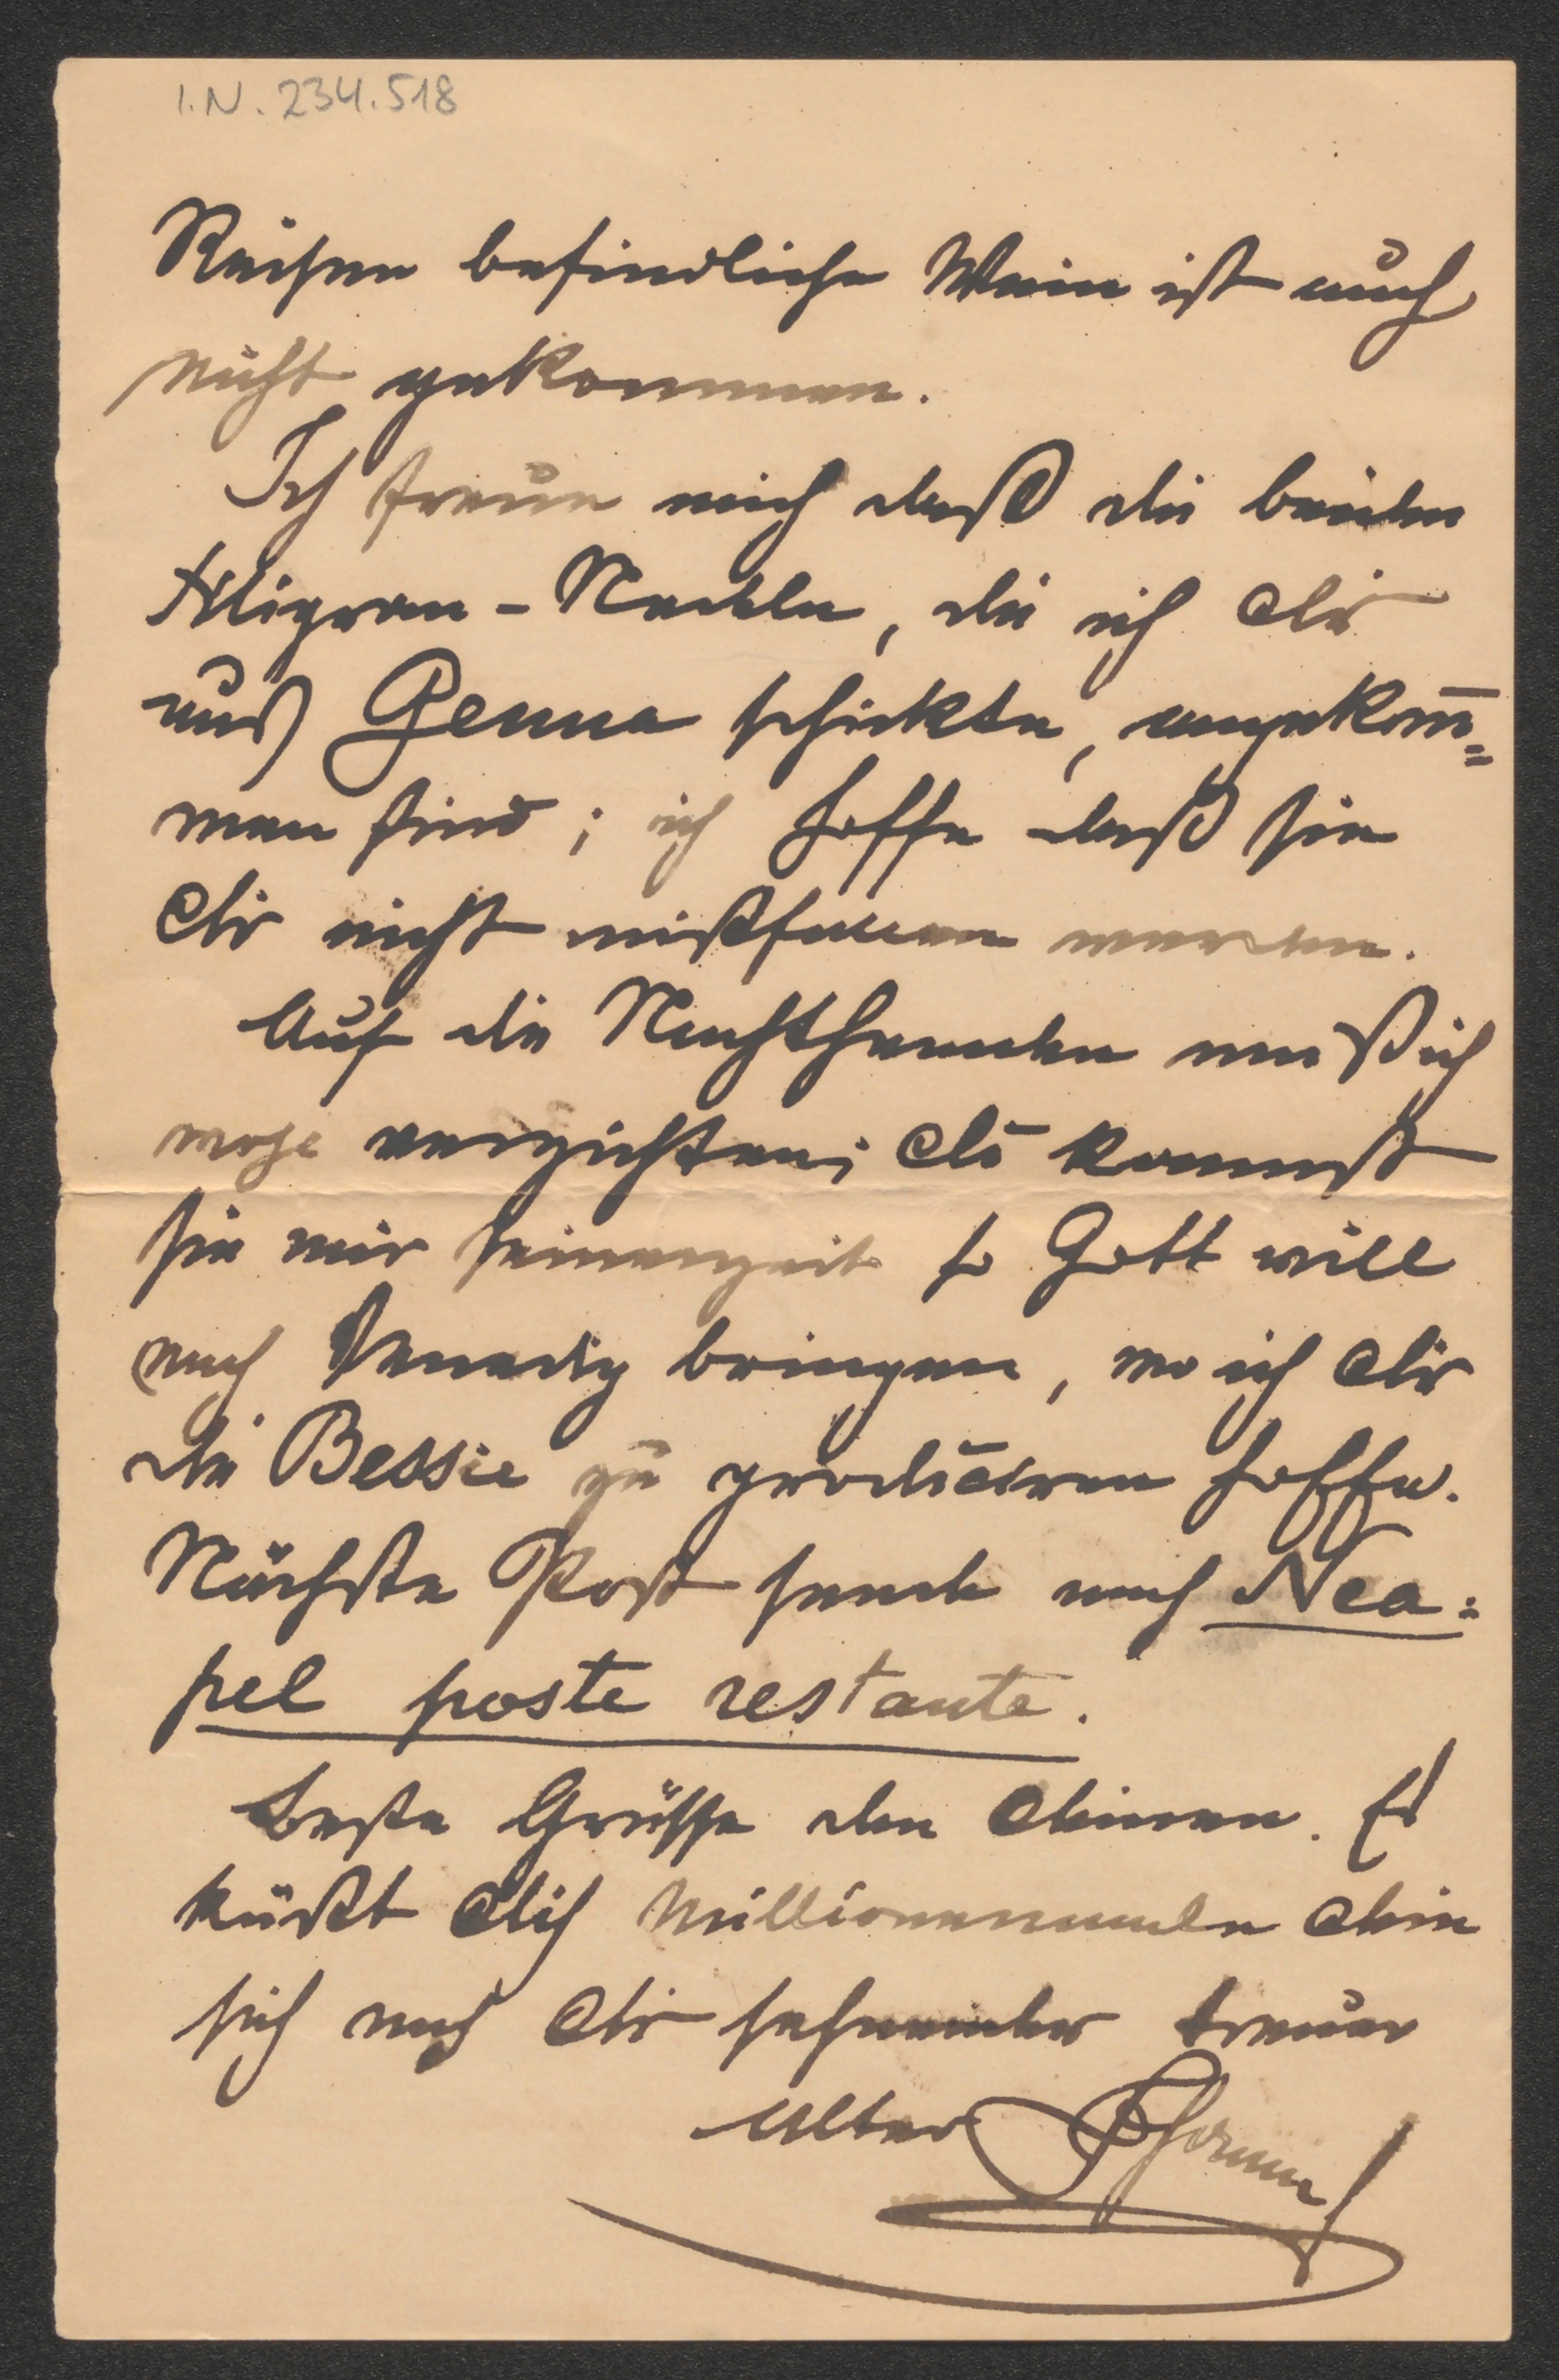 I.N. 234.518
Reisen befindliche Wein ist auch
nicht gekommen.
Ich freue mich daß die beiden
Filigran-Nadeln, die ich Dir
aus Genua schickte, angekom̅=
men sind; ich hoffe daß sie
Dir nicht mißfallen werden.
Auf die Nachthemden muß ich
wohl verzichten; Du kannst
sie mir seinerzeit so Gott will
nach Venedig bringen, wo ich Dir
die Bessie zu produciren hoffe.
Nächste Post sende nach Nea=
pel poste restante.
Beste Grüsse den Deinen. Es
küßt Dich Millionenmale Dein
sich nach Dir sehnender treuer
Alter